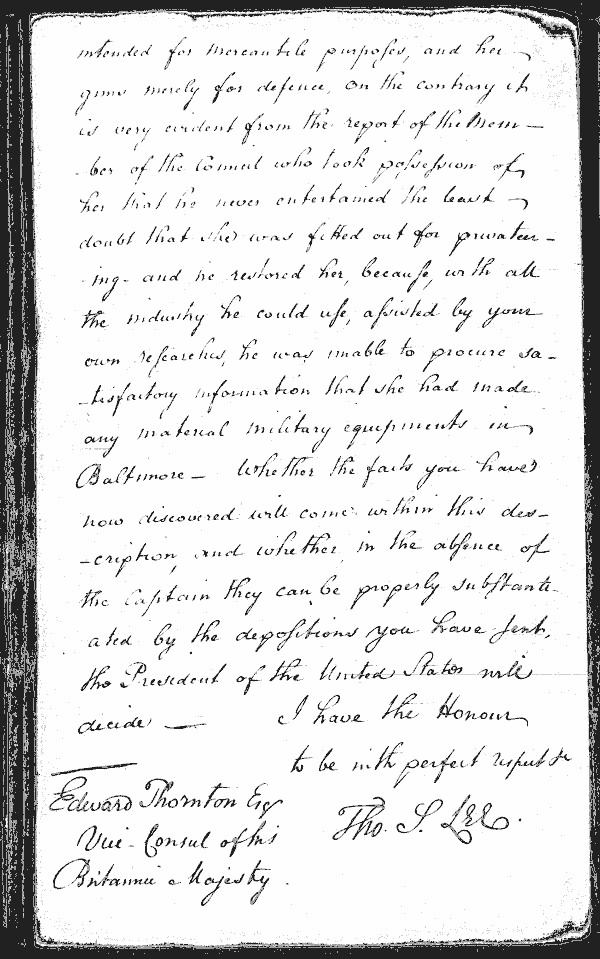 intended for mercantile purposes, and her
guns merely for defence, on the contrary it
is very evident from the report of the Mem-
-ber of the Council who took possession of
her that he never entertained the least
doubt that she was fitted out for privateer-
-ing- and he restored her, because, with all
the industry he could use, assisted by your
own researches, he was unable to procure sa-
-tisfactory information that she had made
any material military equipments in
Baltimore - Whether the facts you have
now discovered will come within this des-
-cription, and whether in the absence of
the Captain they can be properly substanti-
ated by the depositions you have sent,
the President of the United States will
decide — I have the Honour
to be with perfect respect &c
Edward Thornton Esqr Tho. S. Lee.
Vice-Consul of his
Britannic Majesty.